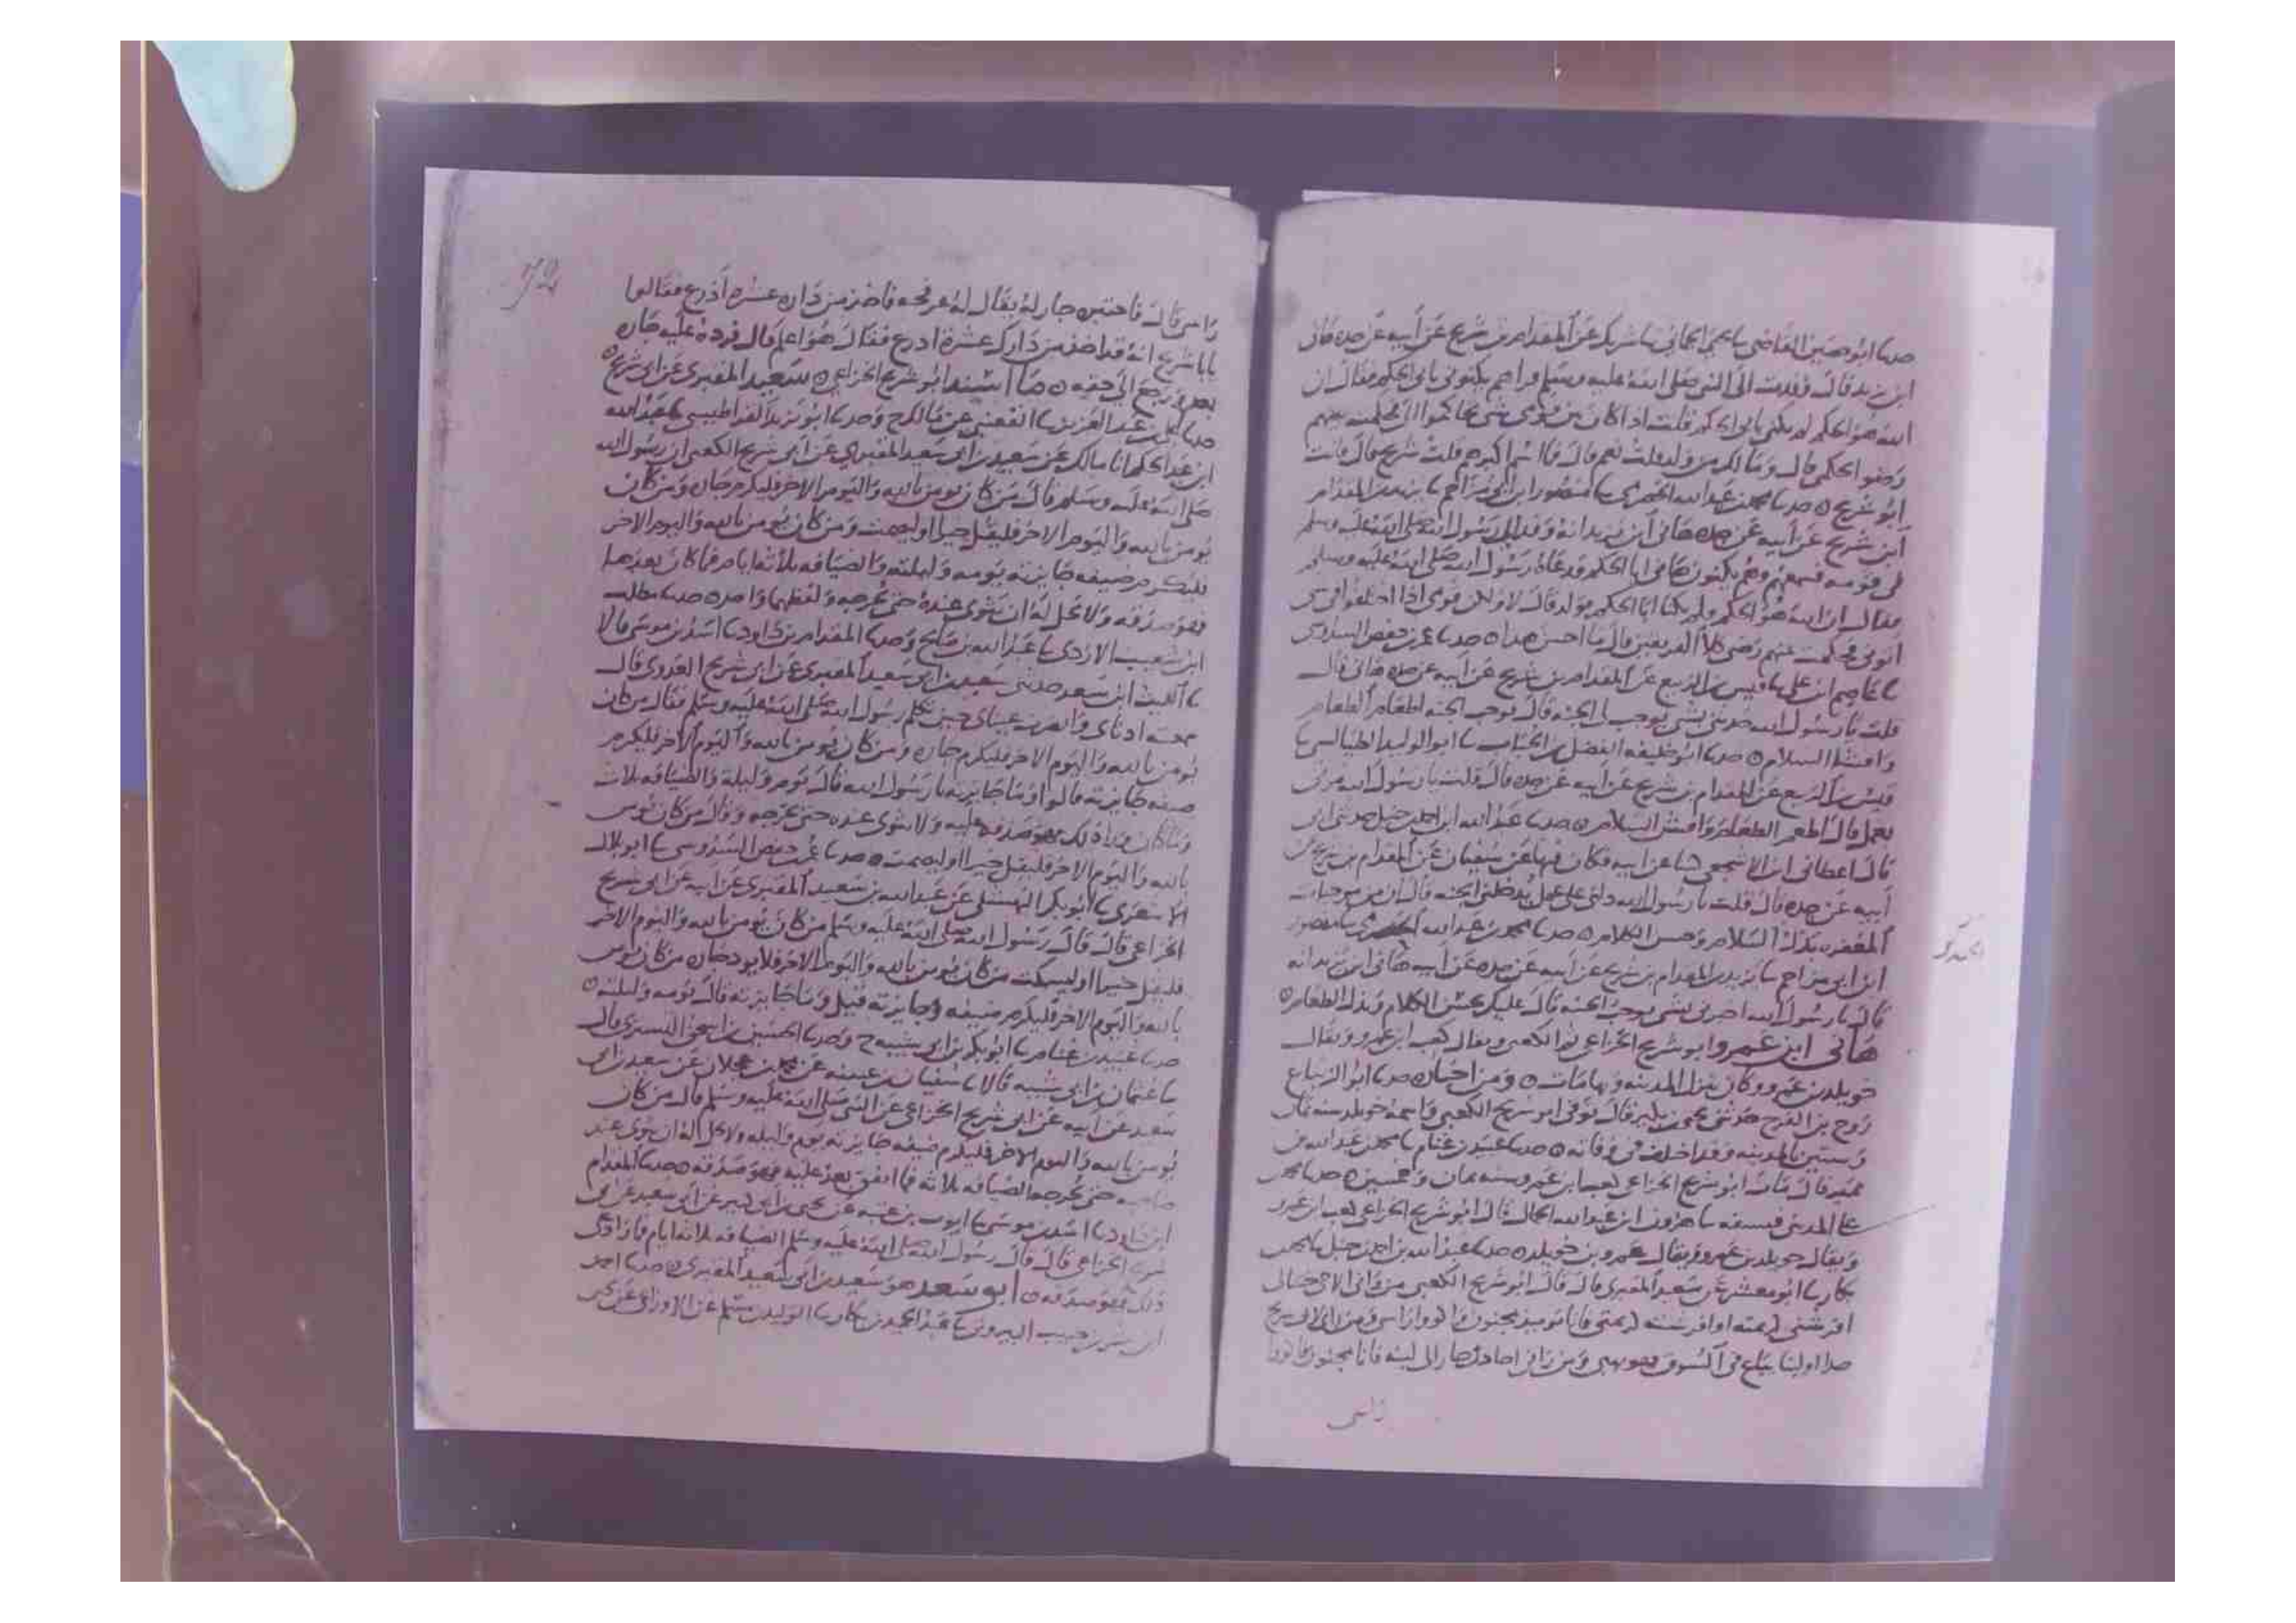 حدثنا ابو حصين القاضي ثنا يحيى الحماني ثنا شريك عن المقدام بن شريح عن أبيه عن جده هاني
ابن يزيد قال وفدت الى النبي صلى الله عليه وسلم يكنوني بابي الحكم فقال ان
الله هو الحكم لم تكنى بابي الحكم قلت اذا كان بين قومي شي تحاكموا الي فحكمت بينهم
رضوا لحكمي قال ومالك من ولد قلت نعم قال فما اسم اكبرهم قلت شريح قال فانت
ابو شريح حدثنا محمد بن عبدالله الحضرمي ثنا منصور ابن ابي مزاحم ثنا يزيد بن المقدام
ابن شريح عن أبيه عن جده هاني ابن يزيد انه وفد الى رسول الله صلى الله عليه وسلم
في قومه فسمعهم وهم يكنون هاني ابا الحكم فدعاه رسول الله صلى الله عليه وسلم
فقال ان الله هو الحكم فلم تكنا ابا الحكم قال لا ولكن قومي اذا اختلفوا في شي
اتوني فحكمت بينهم رضي كلا الفريقين قال ما احسن هذا حدثنا عمر بن حفص السدوسي
ثنا عاصم ابن علي ثنا قيس بن الربيع عن المقدام بن شريح عن أبيه عن جده هاني قال
قلت يا رسول الله حدثني بشي يوجب لي الجنة قال يوجب الجنة اطعام الطعام
وافشاء السلام حدثنا ابو خليفة الفضل بن الحباب ثنا ابو الوليد الطيالسي ثنا
قيس بن الربيع عن المقدام بن شريح عن أبيه عن جده قال قلت يا رسول الله مرني
بعمل قال اطعم الطعام وافش السلام حدثنا عبدالله ابن احمد بن حنبل حدثني ابي
قال اعطاني ابن الاشجعي كتابا عن ابيه فكان فيها عن سفيان عن المقدام بن شريح عن
أبيه عن جده قال قلت يا رسول الله دلني على عمل يدخلني الجنة قال ان من موجبات
المغفرة بذل السلام وحسن الكلام حدثنا محمد بن عبدالله الحضرمي ثنا منصور
ابن ابي مزاحم ثنا يزيد بن المقدام بن شريح عن أبيه عن جده عن أبيه هاني ابن يزيد انه
قال يا رسول الله اخبرني بشي يوجب الجنة قال عليك بحسن الكلام وبذل الطعام
هاني ابن عمرو ابو شريح الخزاعي ثم الكعبي ويقال كعب ابن عمرو ويقال
خويلد بن عمرو وكان ينزل المدينة وبها مات ومن اخباره حدثنا ابو الزنباع
روح بن الفرج حدثني يحيى بن بكير قال توفي ابو شريح الكعبي واسمه خويلد سنة ثمان
وستين بالمدينة وقد اختلف في وفاته حدثنا عبيد بن غنام ثنا محمد بن عبدالله بن
نمير قال مات ابو شريح الخزاعي كعب بن عمرو سنة ثمان وخمسين حدثنا محمد بن
علي المديني فستقة ثنا هارون ابن عبدالله الحمال قال ابو شريح الخزاعي كعب بن عمرو
ويقال خويلد بن عمرو ويقال عمرو بن خويلد حدثنا عبدالله بن احمد بن حنبل ثنا محمد بن
بكار ثنا ابو معشر عن سعيد المقبري قال قال ابو شريح الكعبي من راني
راسي
72
راسي قال فاحتفر جار له يقال له عرفجة فاخذ من داره عشرة أذرع فقالوا
يا با شريح انه قد اخذ من دارك عشرة اذرع فقال هو اعلم قال فرده عليه جاره
بعد ورجع الى حقه ما اسند ابو شريح الخزاعي سعيد المقبري عن ابي شريح
حدثنا علي بن عبد العزيز ثنا القعنبي عن مالك ح وحدثنا ابو يزيد القراطيسي ثنا عبدالله
ابن عبد الحكم انا مالك عن سعيد بن ابي سعيد المقبري عن ابي شريح الكعبي ان رسول الله
صلى الله عليه وسلم قال من كان يومن بالله واليوم الاخر فليكرم جاره ومن كان
يومن بالله واليوم الاخر فليقل خيرا او ليصمت ومن كان يومن بالله واليوم الاخر
فليكرم ضيفه جايزته يومه وليلته والضيافة ثلاثة ايام فما كان بعد هذا
فهو صدقة ولا يحل له ان يثوي عنده حتى يحرجه ولفظهما واحد حدثنا مطلب
ابن شعيب الازدي ثنا عبدالله بن صالح وحدثنا المقدام بن داود ثنا اسد بن موسى قالا
ثنا الليث ابن سعد حدثني سعيد بن ابي سعيد المقبري عن ابي شريح العدوي قال
سمعت اذناي وابصرت عيناي حين تكلم رسول الله صلى الله عليه وسلم فقال من كان
يومن بالله واليوم الاخر فليكرم جاره ومن كان يومن بالله واليوم الاخر فليكرم
ضيفه جايزته قالوا وما جايزته يا رسول الله قال يوم وليلة والضيافة ثلاث
وما كان وراء ذلك فهو صدقة عليه ولا يثوي عنده حتى يحرجه وقال من كان يومن
بالله واليوم الاخر فليقل خيرا او ليصمت حدثنا عمر بن حفص السدوسي ثنا ابو بلال
الاشعري ثنا ابو بكر النهشلي عن عبدالله بن سعيد المقبري عن ابيه عن ابي شريح
الخزاعي قال قال رسول الله صلى الله عليه وسلم من كان يومن بالله واليوم الاخر
فليقل خيرا او ليسكت من كان يومن بالله واليوم الاخر فلا يوذ جاره من كان يومن
بالله واليوم الاخر فليكرم ضيفه وجايزته قيل وما جايزته قال يومه وليلته
حدثنا عبيد بن غنام ثنا ابو بكر بن ابي شيبة ح وحدثنا الحسين بن اسحق التستري قال
ثنا عثمان بن ابي شيبة قالا ثنا سفيان بن عيينة عن محمد بن عجلان عن سعيد بن ابي
سعيد عن ابيه عن ابي شريح الخزاعي عن النبي صلى الله عليه وسلم قال من كان
يومن بالله واليوم الاخر فليكرم ضيفه جايزته يوم وليلة ولا يحل له ان يثوي عند
صاحبه حتى يحرجه الضيافة ثلاثة فما انفق بعد عليه فهو صدقة حدثنا المقدام
ابن داود ثنا اسد بن موسى ثنا ايوب بن عتبة عن يحيى بن ابي كثير عن ابي سعيد عن ابي
شريح الخزاعي قال قال رسول الله صلى الله عليه وسلم الضيافة ثلاثة ايام فما زاد على
ذلك فهو صدقة ابو سعيد هو سعيد بن ابي سعيد المقبري حدثنا احمد
ابن بشر بن حبيب البيروتي ثنا عبد الحميد بن بكار ثنا الوليد بن مسلم عن الاوزاعي عن يحيى